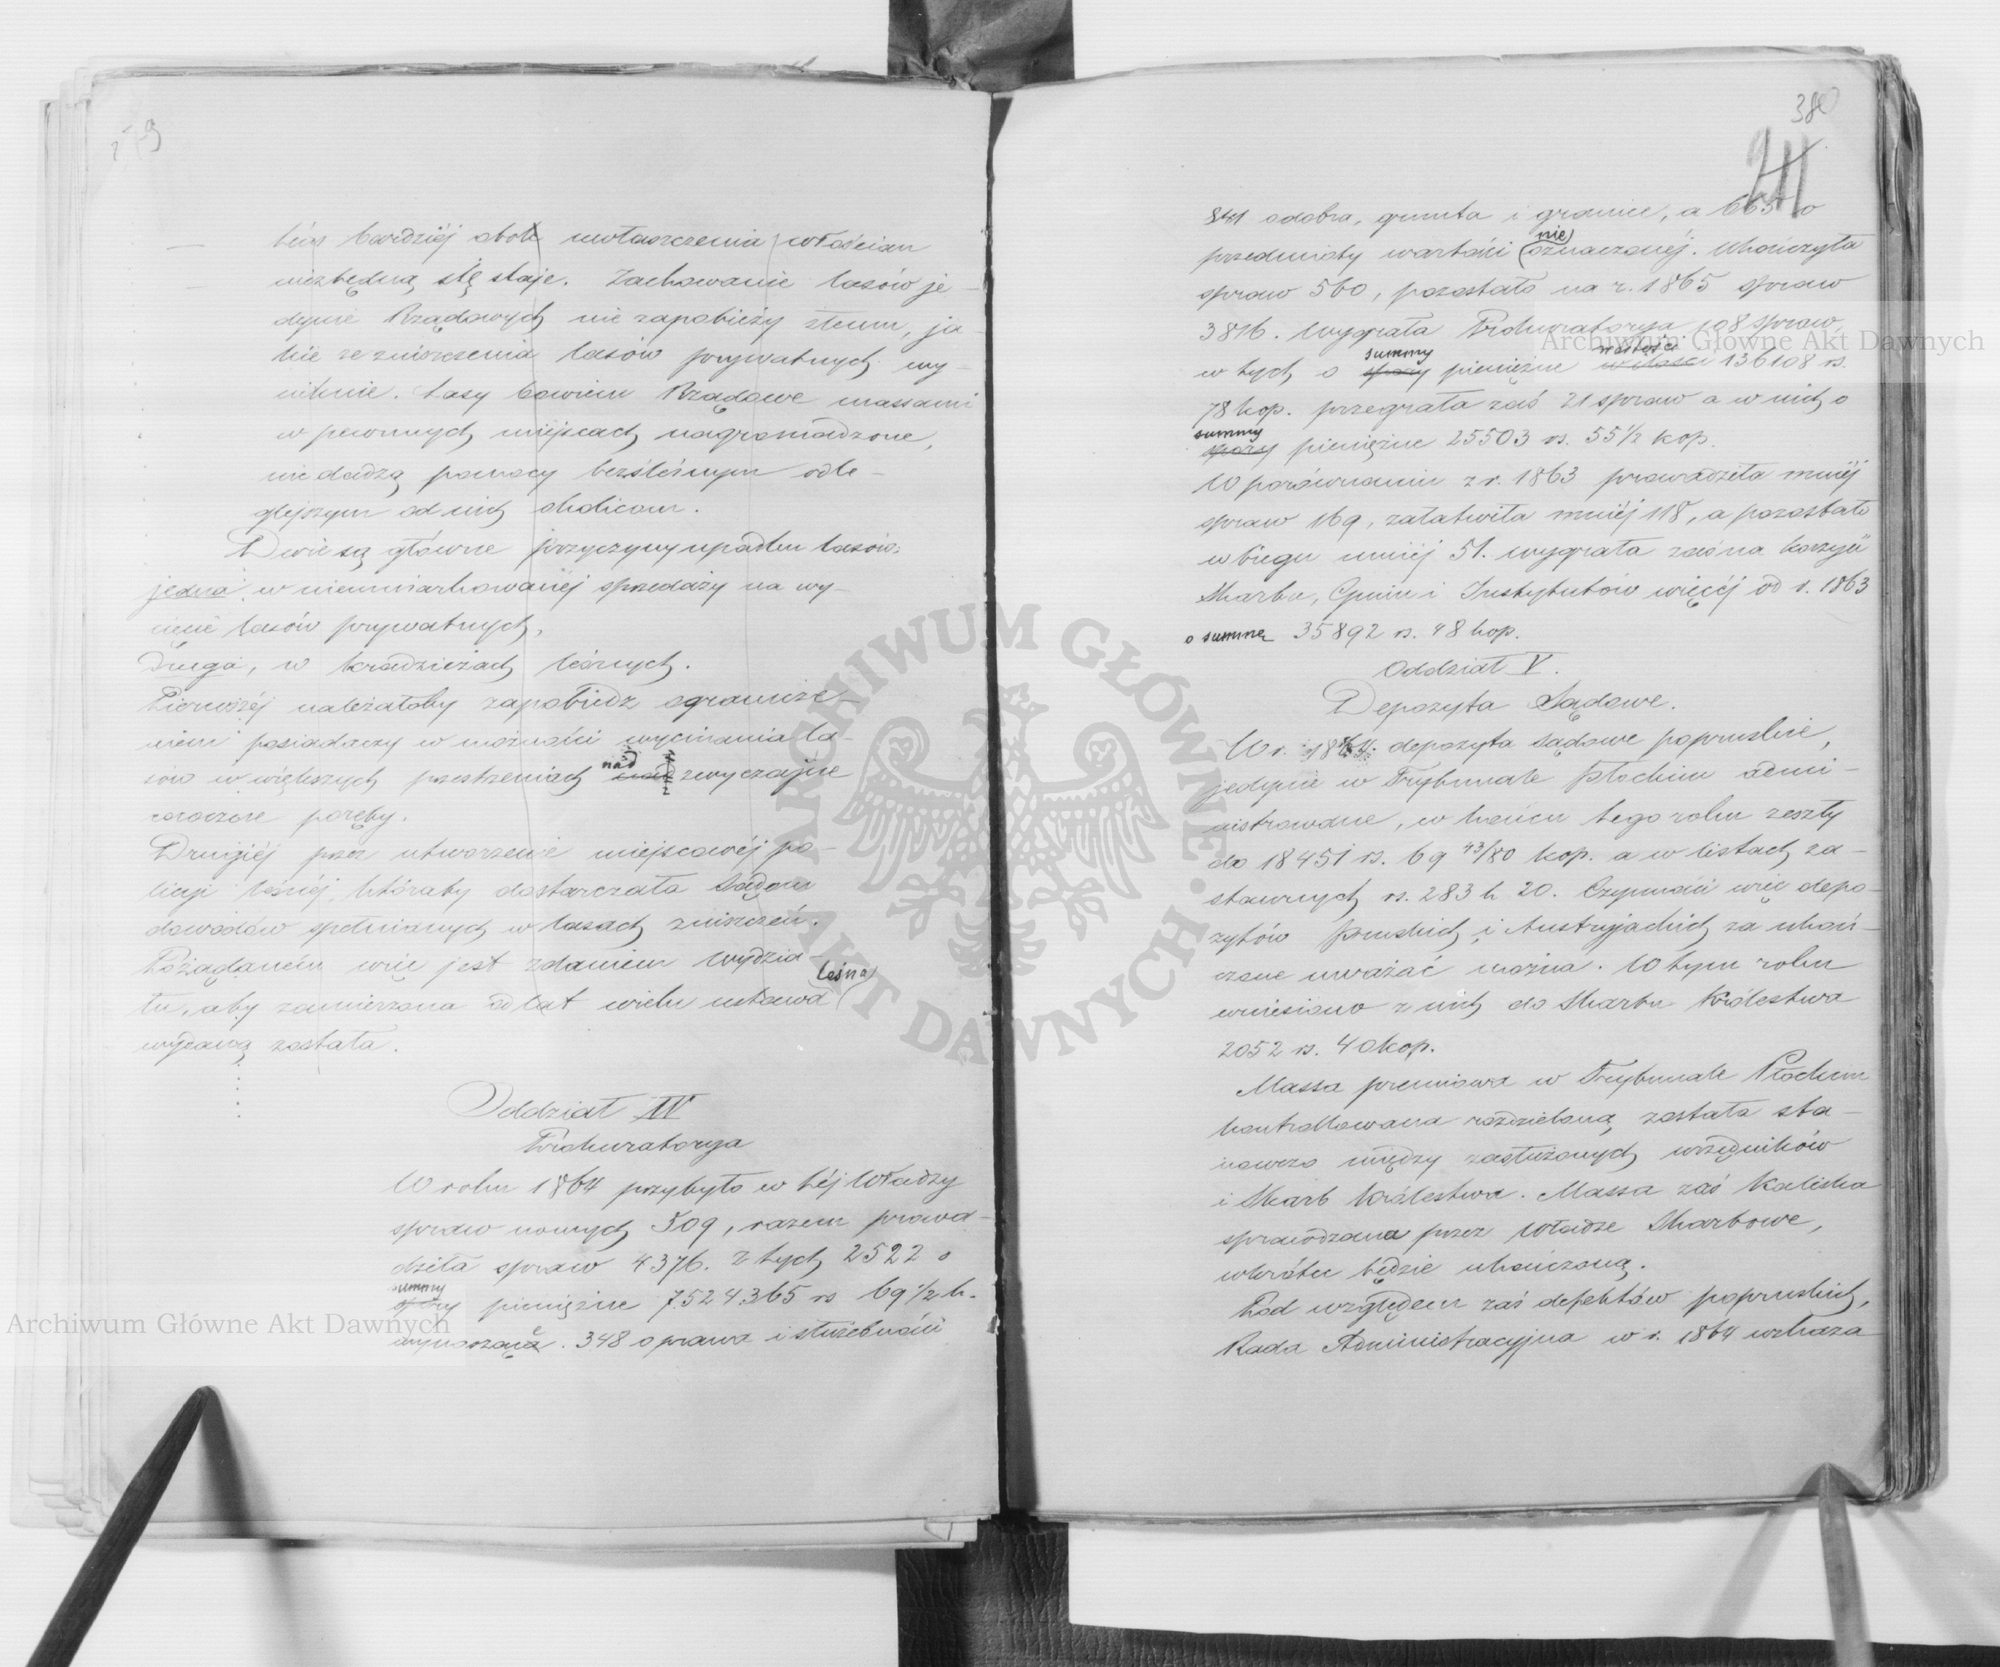 bardziéj obok uwłaszczenia włościan
niezbędną się staje. Zachowanie lasów je-
dynie Rządowych nie zapobieży złemu, ja-
kie ze zniszczenia lasów prywatnych wy-
niknie. Lasy bowiem Rządowe massami
w pewnych miejscach nagromadzone,
nie dadzą pomocy bezleśnym odle-
glejszym od nich okolicom.
Dwie są główne przyczyny upadku lasów:
jedna w nieumiarkowanéj sprzedaży na wy-
cięcie lasów prywatnych,
Druga, w kradzieżach leśnych.
Pierwszéj należałoby zapobiedz ogranicze-
niem posiadaczy w możności wycinania la-
sów w większych przestrzeniach nad zwyczajne
roczne poręby.
Drugiéj przez utworzenie miejscowéj po-
licyi leśnéj, któraby dostarczała Sądom
dowodów spełnionych w lasach zniszczeń.
Pożądaném więc jest zdaniem Wydzia-
łu, aby zamierzona od lat wielu ustawa leśna
wydaną została.
Oddział IV
Prokuratorya
W roku 1864 przybyło w téj Władzy
spraw nowych 509, razem prowa-
dziła spraw 4376. z tych 2522 o
summy
spory pieniężne 7524365 rs 69 1/2 k.
wynoszące. 348 o prawa i służebności
380
241
841 o dobra, grunta i granice, a 665 o
przedmioty wartości nie oznaczonéj. Ukończyła
spraw 560, pozostało na r. 1865 spraw
3816. Wygrała Prokuratorya 108 spraw,
w tych o summy spory pieniężne 136108 rs.
78 kop. przegrała zaś 21 spraw a w nich o
summy
spory pieniężne 25503 rs. 55 1/2 kop.
W porównaniu z r. 1863 prowadziła mniéj
spraw 169, załatwiła mniéj 118, a pozostało
w biegu mniéj 51. wygrała zaś na korzyść
Skarbu, Gmin i Instytutów więcéj od r. 1863
o summę 35892 rs. 48 kop.
Oddział V.
Depozyta Sądowe.
W r. 1864. depozyta sądowe popruskie,
jedynie w Trybunale Płockim admi-
nistrowane, w końcu tego roku zeszły
do 18451 rs. 69 43/80 kop. a w listach za-
stawnych rs. 283 k 20. Czynności więc depo-
zytów pruskich i Austryjackich za ukoń-
czone uważać można. W tym roku
wniesiono z nich do Skarbu Królestwa
2052 rs. 40 kop.
Massa premiowa w Trybunale Płockim
kontrollowana rozdzieloną została sta-
nowczo między zasłużonych urzędników
i Skarb Królestwa. Massa zaś Kaliska
sprawdzana przez Władze Skarbowe,
wkrótce będzie ukończoną.
Pod względem zaś defektów popruskich,
Rada Administracyjna w r. 1864 wskaza
Archiwum Główne Akt Dawnych
Archiwum Główne Akt Dawnych
ARCHIWUM GŁÓWNE AKT DAWNYCH